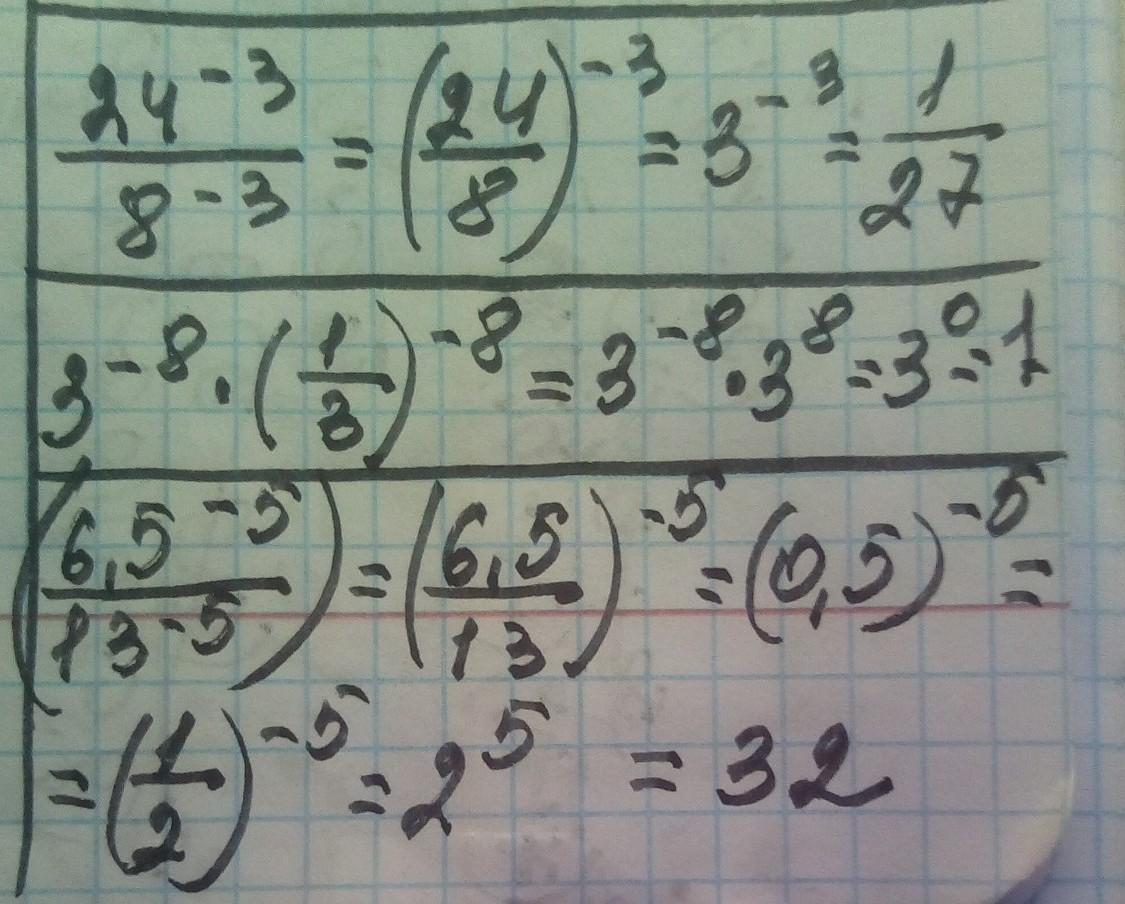 24⁻³/8⁻³ = (24/8)⁻³ = 3⁻³ = 1/27
3⁻⁸ · (1/3)⁻⁸ = 3⁻⁸ · 3⁸ = 3⁰ = 1
(6,5⁻⁵/13⁻⁵) = (6,5/13)⁻⁵ = (0,5)⁻⁵ =
= (1/2)⁻⁵ = 2⁵ = 32